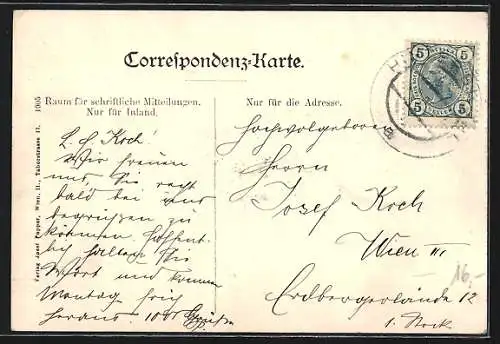 Correspondenz-Karte.
Raum für schriftliche Mitteilungen.
Nur für Inland.
Nur für die Adresse.
1905
Verlag Josef Popper, Wien, II., Taborstrasse 11.
5 5
5 5
L. H. Koch!
Wir freuen
uns, Sie recht
bald bei uns
begrüssen zu
können. Hoffent-
lich halten Sie
Wort und kommen
Montag früh
heraus. 1000 Grüsse
Hochwolgeboren
Herrn
Josef Koch
Wien III
Erdbergerlände 12
1. Stock
16,-